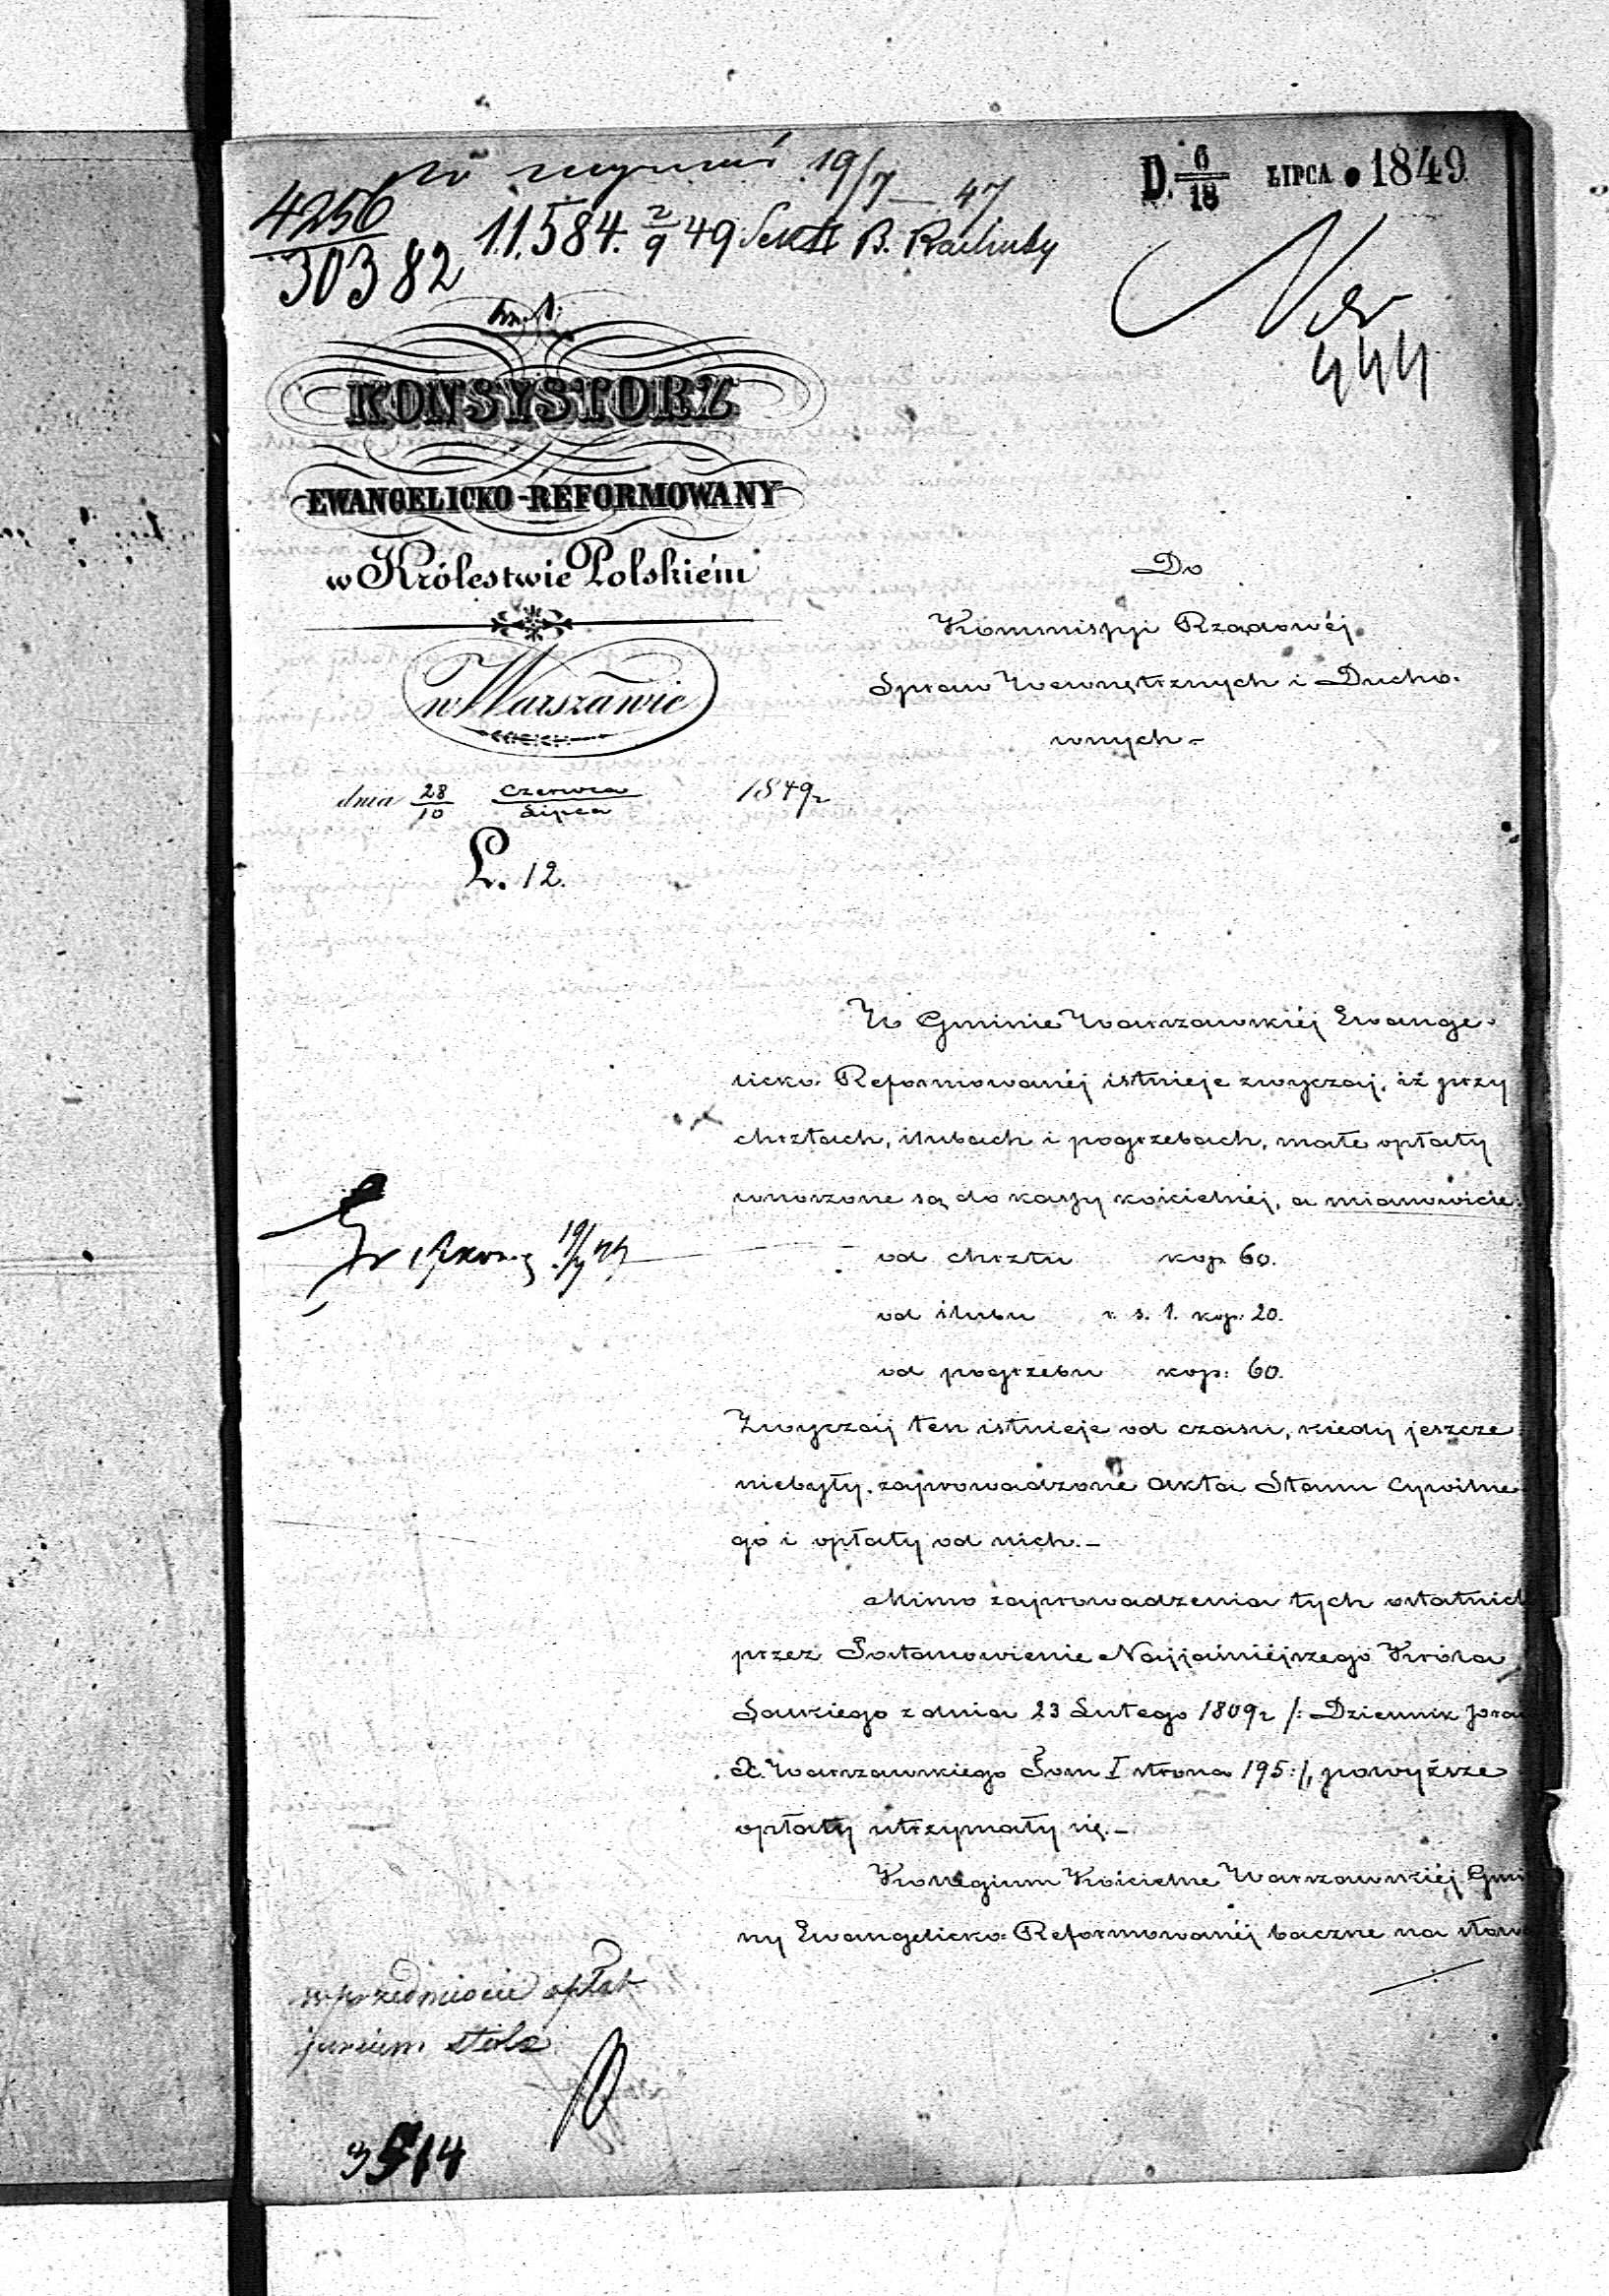 19/7 47
D. 6/18 LIPCA 1849
4256
30382
11584. 2/9 49 B.
444
KONSYSTORZ
EWANGELICKO-REFORMOWANY
w Królestwie Polskiém
w Warszawie
dnia 28/10 Czerwca/Lipca 1849r
L. 12.
Do
Kommissyi Rządowéj
Spraw Wewnętrznych i Ducho-
wnych.–
W Gminie Warszawskiéj Ewange-
licko-Reformowanéj istnieje zwyczaj, iż przy
chrztach, ślubach i pogrzebach, małe opłaty
wnoszone są do kassy kościelnéj, a mianowicie:
od chrztu kop. 60.
od ślubu r. s. 1. kop: 20.
od pogrzebu kop: 60.
Zwyczaj ten istnieje od czasu, kiedy jeszcze
niebyły zaprowadzone Akta Stanu Cywilne
go i opłaty od nich.–
Mimo zaprowadzenia tych ostatnich
przez Postanowienie Najjaśniéjszego Króla
Saskiego z dnia 23 Lutego 1809r /: Dziennik praw
X. Warszawskiego Tom I strona 195:/, powyższe
opłaty utrzymały się.–
Kollegium Kościelne Warszawskiéj Gmi
ny Ewangelicko-Reformowanéj baczne na
w przedmiocie opłat
jurium stolæ
3514